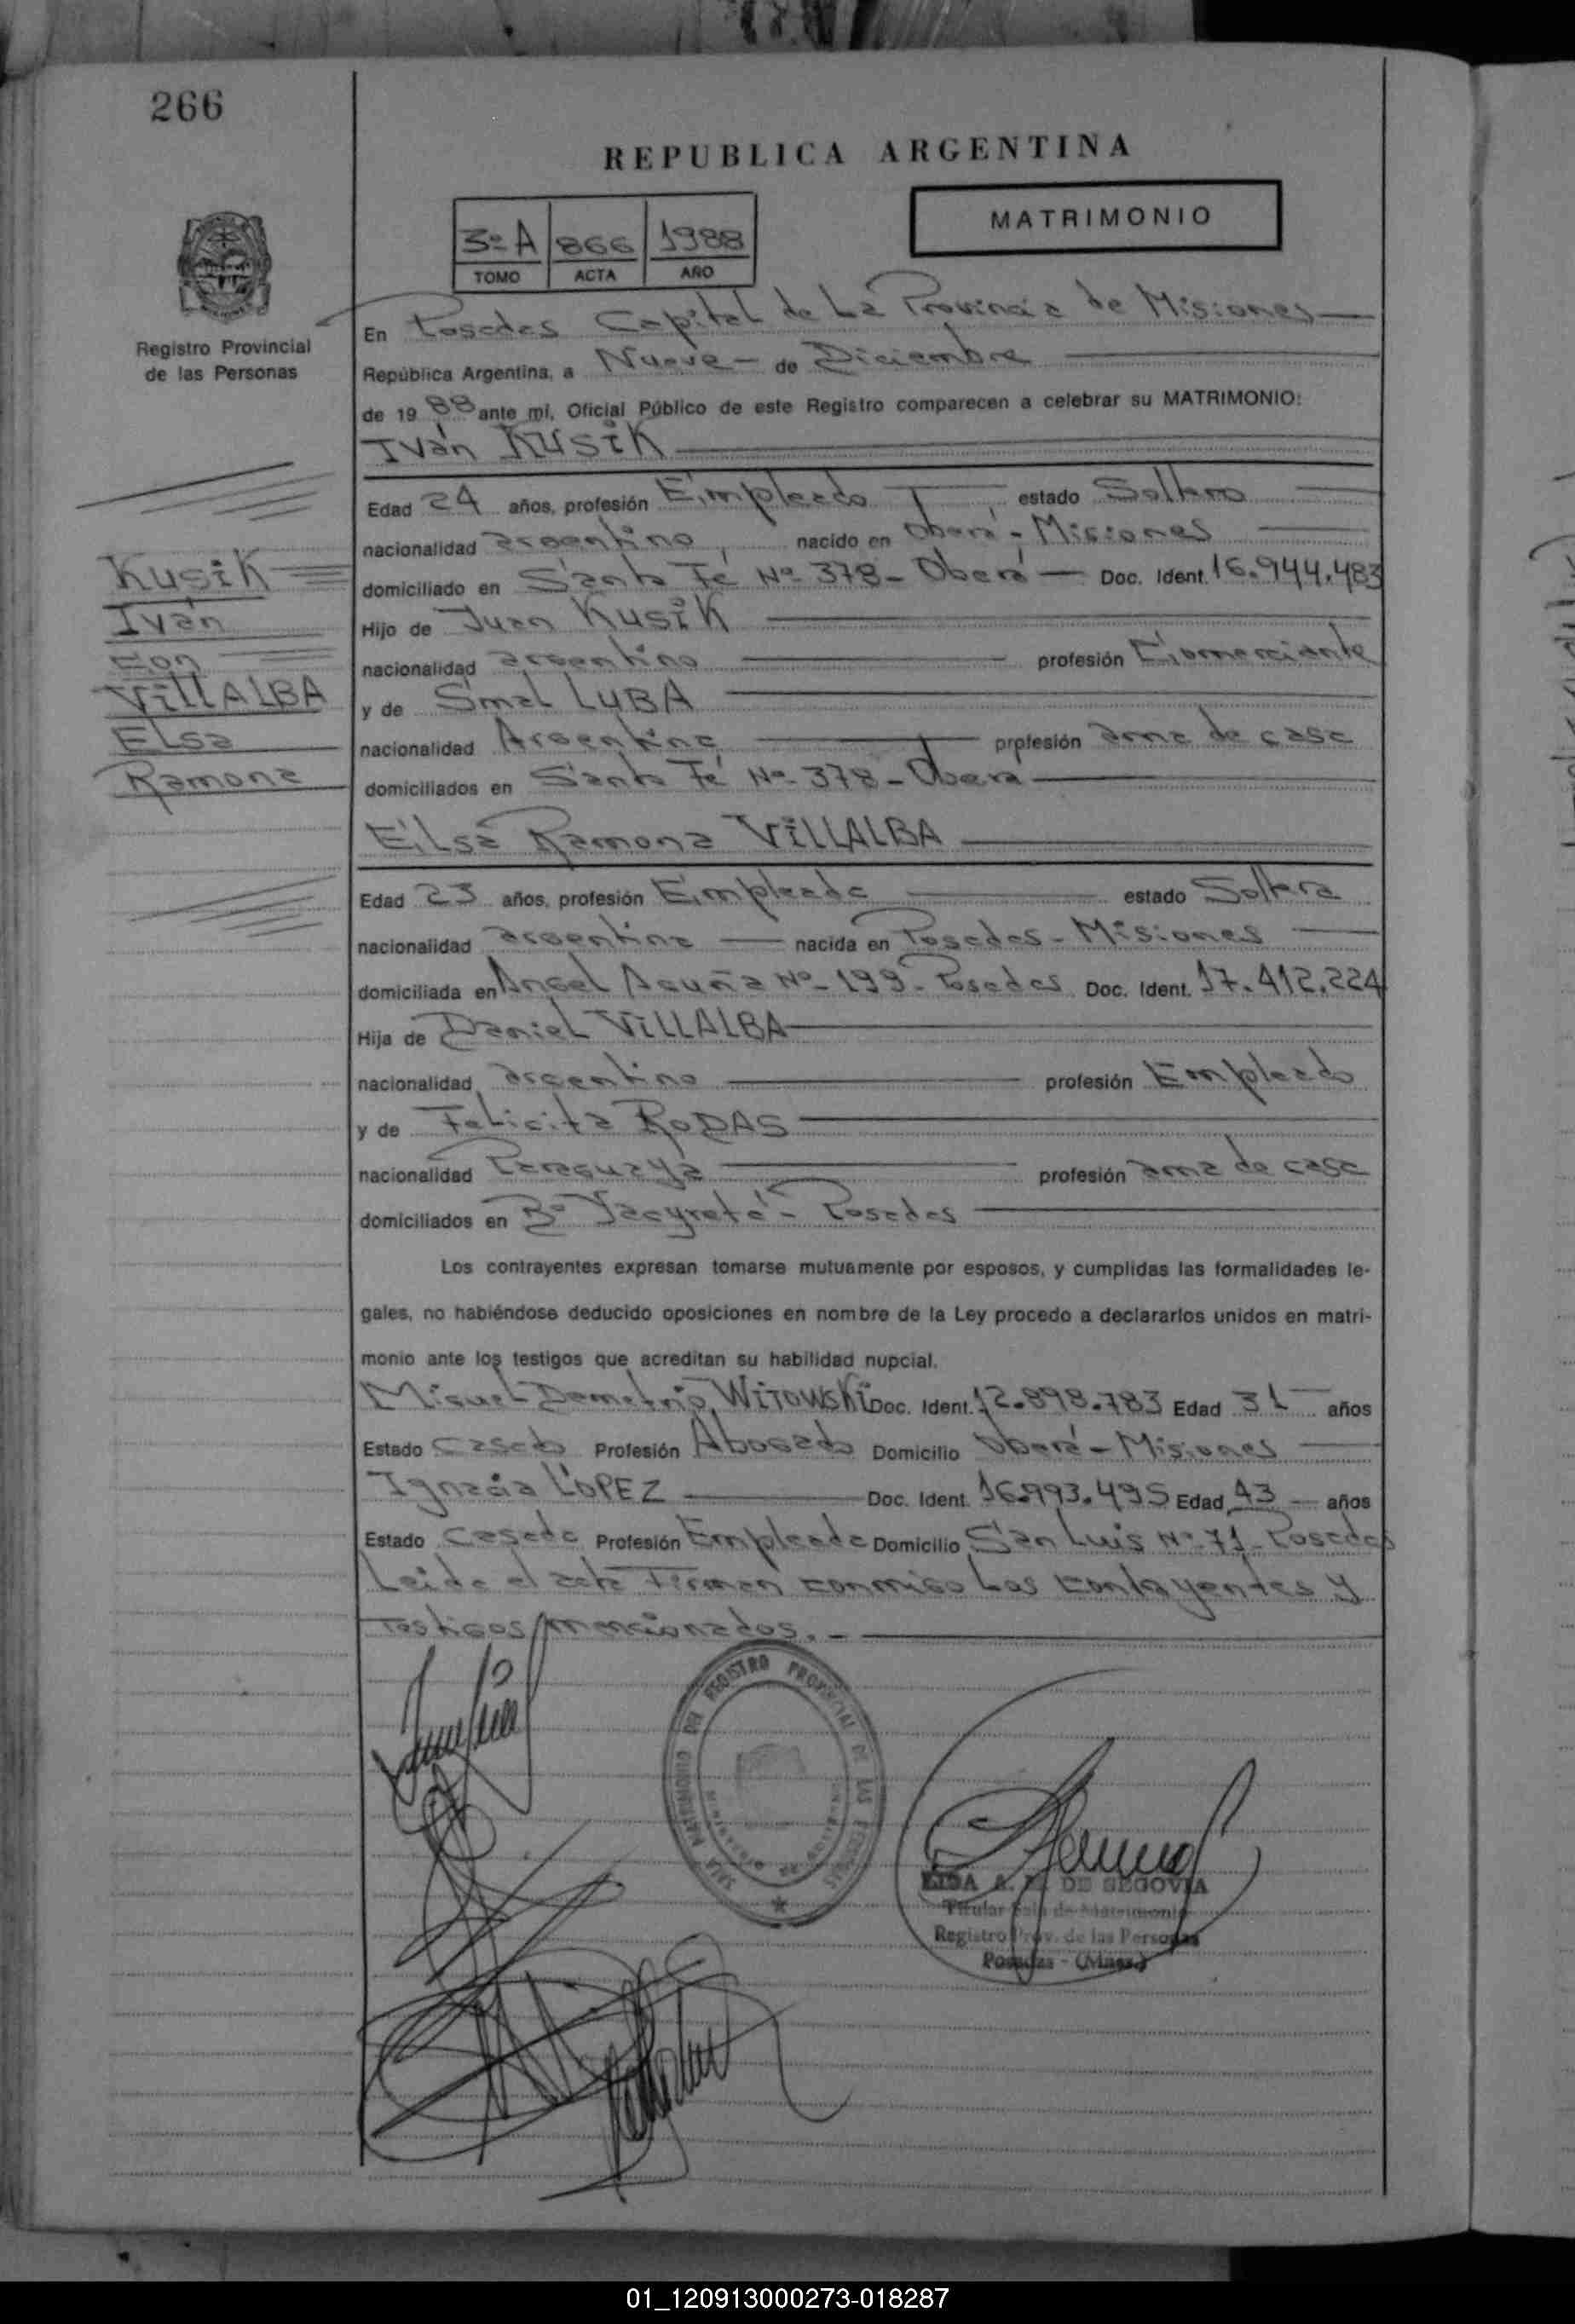 266
REPUBLICA ARGENTINA
MATRIMONIO
3º A 866 1988
TOMO ACTA AÑO
Registro Provincial
de las Personas
En Posadas Capital de La Provincia de Misiones
República Argentina, a Nueve de Diciembre
de 1988 ante mí, Oficial Público de este Registro comparecen a celebrar su MATRIMONIO:
Iván KUSiK
Edad 24 años, profesión Empleado estado Soltero
nacionalidad argentino, nacido en Oberá - Misiones
domiciliado en Santa Fé Nº 378 - Oberá Doc. Ident. 16.944.483
Hijo de Juan KUSiK
nacionalidad argentino profesión Comerciante
y de Smal LUBA
nacionalidad Argentina profesión ama de casa
domiciliados en Santa Fé Nº 378 - Oberá
KusiK
Iván
con
ViLLALBA
ELsa
Ramona
ELsa Ramona ViLLALBA
Edad 23 años, profesión Empleada estado Soltera
nacionalidad argentina nacida en Posadas - Misiones
domiciliada en Angel Acuña Nº 199 - Posadas Doc. Ident. 17.412.224
Hija de Daniel ViLLALBA
nacionalidad argentino profesión Empleado
y de Felicita RODAS
nacionalidad Paraguaya profesión ama de casa
domiciliados en Bº Yacyretá - Posadas
Los contrayentes expresan tomarse mutuamente por esposos, y cumplidas las formalidades le-
gales, no habiéndose deducido oposiciones en nombre de la Ley procedo a declararlos unidos en matri-
monio ante los testigos que acreditan su habilidad nupcial.
Miguel Demetrio WiTOWSKi Doc. Ident. 12.898.783 Edad 31 años
Estado casado Profesión Abogado Domicilio Oberá - Misiones
Ignacia LOPEZ Doc. Ident. 16.993.495 Edad 43 años
Estado casada Profesión Empleada Domicilio San Luis Nº 71 - Posadas
Leida el acta Firman conmigo Los contrayentes y
Testigos mencionados. -
SALA MATRIMONIO DEL REGISTRO PROVINCIAL DE LAS PERSONAS
DE SEGOVIA
Titular Sala de Matrimonio
Registro Prov. de las Personas
Posadas - (Mnes.)
01_120913000273-018287